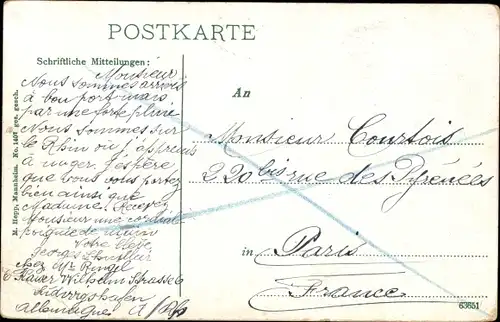 POSTKARTE
Schriftliche Mitteilungen:
Monsieur
Nous sommes arrivés
à bon port mais
par une forte pluie
Nous sommes sur
le Rhin où j'apprends
à nager. J'espère
que vous vous portez
bien ainsi que
Madame. Recevez
Monsieur une cordiale
poignée de main
Votre élève
Georges
chez Mr Ringel
6 Kaiser Wilhelm Strasse 6
Ludwigshafen
Allemagne a/Rh
M. Hepp, Mannheim. No. 1407 ges. gesch.
An
Monsieur Courtois
220 bis rue des Pyrénées
in Paris
France
63651